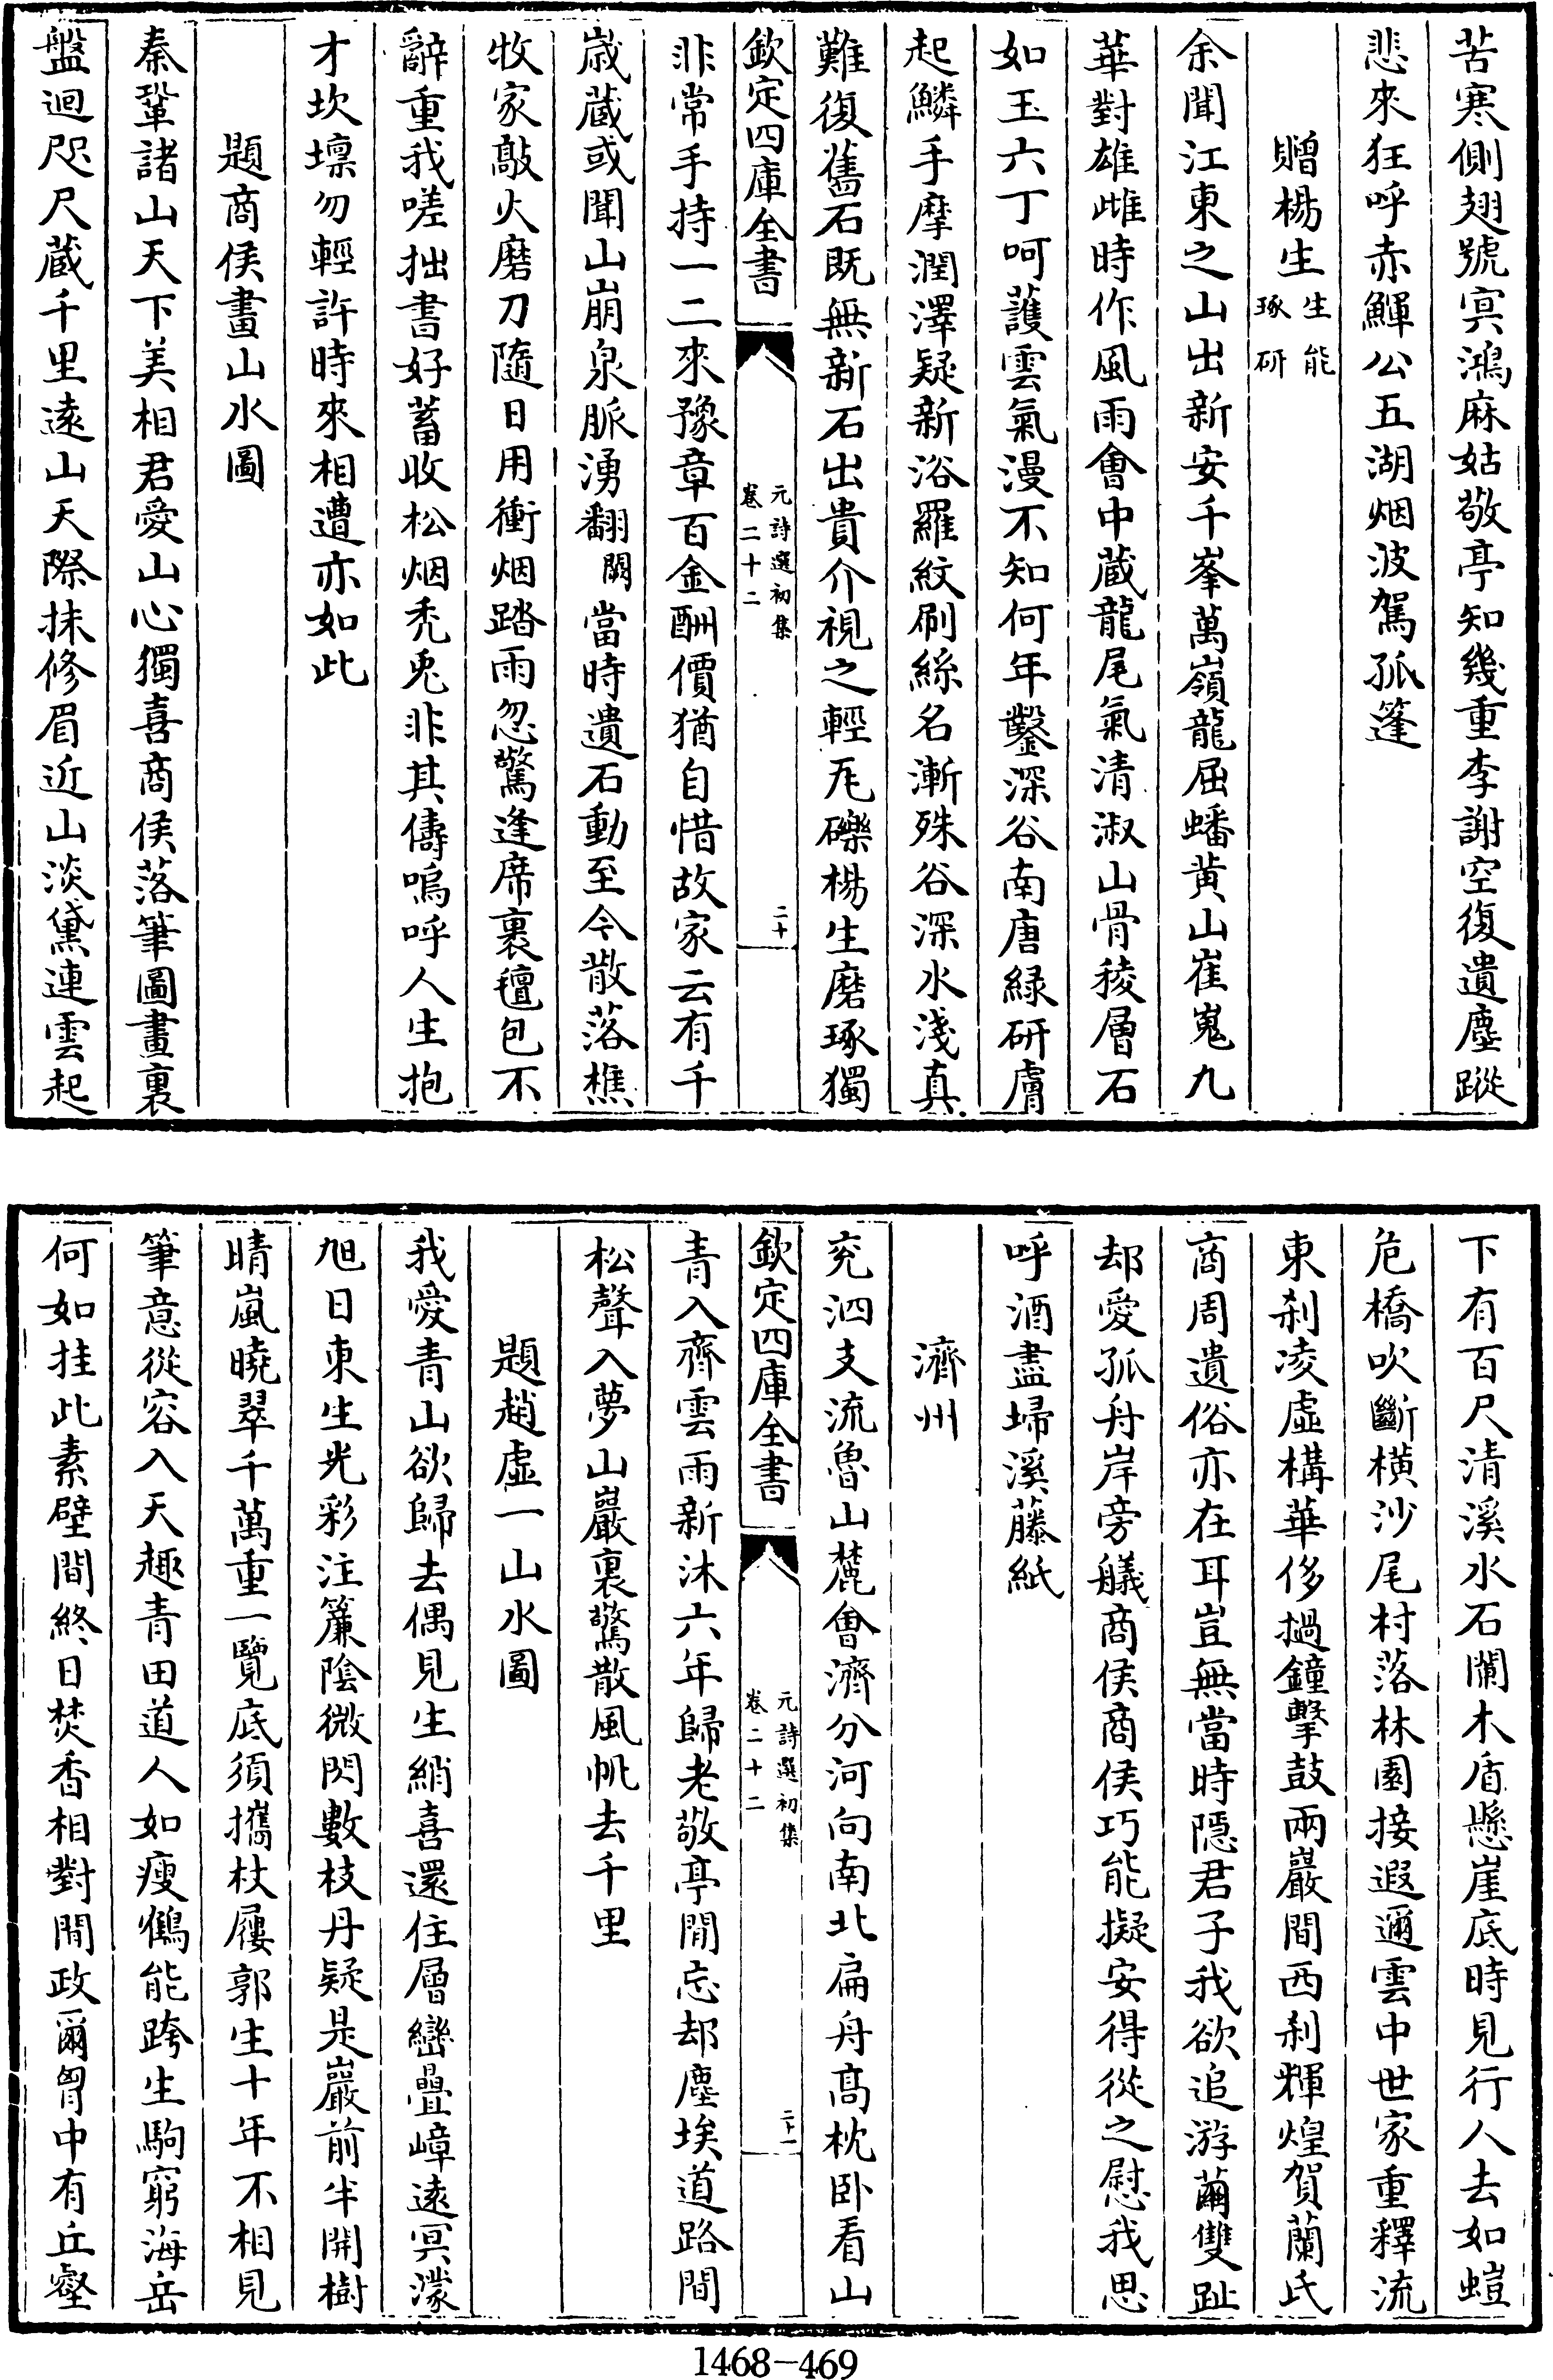 苦寒側翅號㝠鴻麻姑敬亭知幾重李謝空復遺塵蹤
悲來狂呼赤鯶公五湖烟波駕孤篷
贈楊生生能琢研
余聞江東之山出新安千峯萬嶺龍屈蟠黄山崔嵬九
華對雄雌時作風雨會中蔵龍尾氣清淑山骨稜層石
如玉六丁呵護雲氣漫不知何年鑿深谷南唐緑研膚
起鱗手摩潤澤疑新浴羅紋刷絲名漸殊谷深水淺真
難復舊石既無新石出貴介視之輕瓦礫楊生磨琢獨
欽定四庫全書
元詩選初集
卷二十二
二十
非常手持一二來豫章百金酬價猶自惜故家云有千
歳蔵或聞山崩泉脈湧翻闕當時遺石動至今散落樵
牧家敲火磨刀隨日用衝烟踏雨忽驚逢席裹氊包不
辭重我嗟拙書好蓄收松烟秃兎非其儔嗚呼人生抱
才坎壈勿輕許時來相遭亦如此
題商侯畫山水圖
秦鞏諸山天下美相君愛山心獨喜商侯落筆圖畫裏
盤迴咫尺蔵千里逺山天際抹修眉近山淡黛連雲起
下有百尺清溪水石闌木盾懸崖底時見行人去如螘
危橋吹斷横沙尾村落林園接遐邇雲中世家重釋流
東刹凌虚構華侈撾鐘擊鼓兩巖間西刹輝煌賀蘭氏
商周遺俗亦在耳豈無當時隠君子我欲追游繭雙趾
却愛孤舟岸旁艤商侯商侯巧能擬安得從之慰我思
呼酒盡埽溪藤紙
濟州
兖泗支流魯山麓會濟分河向南北扁舟髙枕卧看山
欽定四庫全書
元詩選初集
卷二十二
二十一
青入齊雲雨新沐六年歸老敬亭間忘却塵埃道路間
松聲入夢山巖裏驚散風帆去千里
題趙虚一山水圖
我愛青山欲歸去偶見生綃喜還住層巒疊嶂逺冥濛
旭日東生光彩注簾陰微閃數枝丹疑是巖前半開樹
晴嵐曉翠千萬重一覽底須攜杖屨郭生十年不相見
筆意從容入天趣青田道人如瘦鶴能跨生駒窮海岳
何如挂此素壁間終日焚香相對閒政爾胷中有丘壑
1468-469